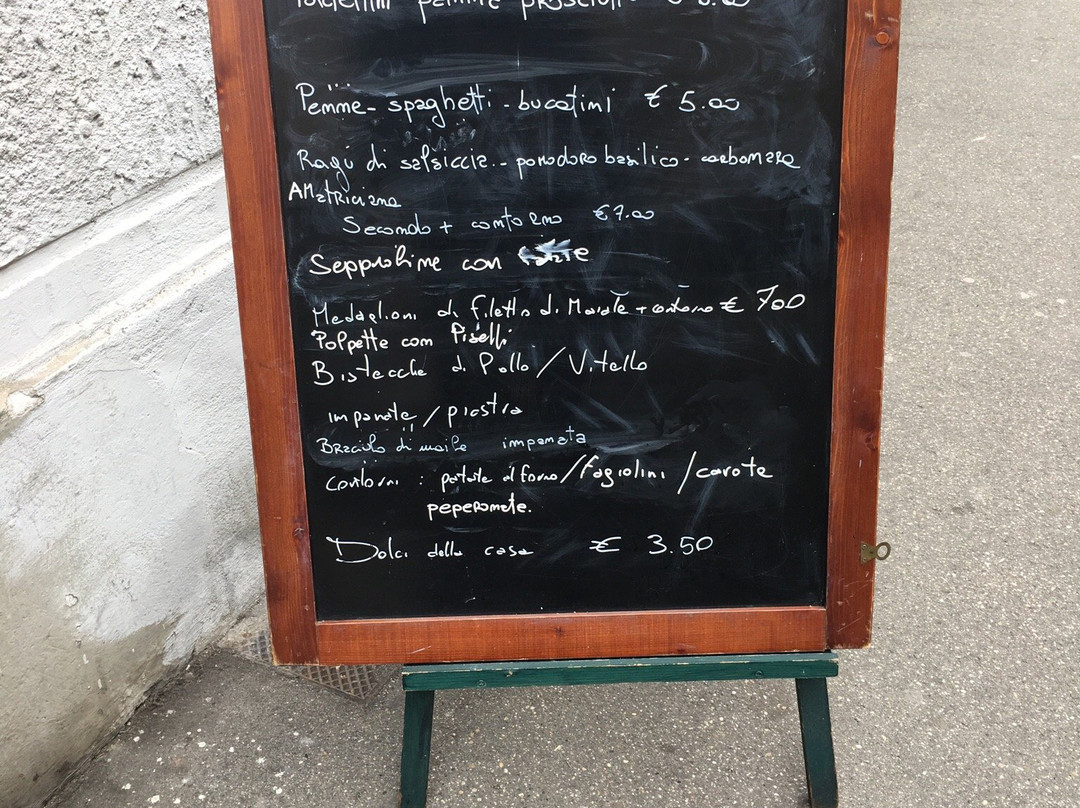 Penne - spaghetti - bucatini € 5.00
Ragù di salsiccia - pomodoro basilico - carbonara
AMatriciana
Secondo + contorno €7.00
Seppioline con
Medaglioni di filetto di Maiale + contorno € 700
Polpette con Piselli
Bistecche di Pollo / Vitello
impanate / piastra
Braciola di maile impanata
Contorni : patate al forno / Fagiolini / carote
peperonate.
Dolci della casa € 3.50